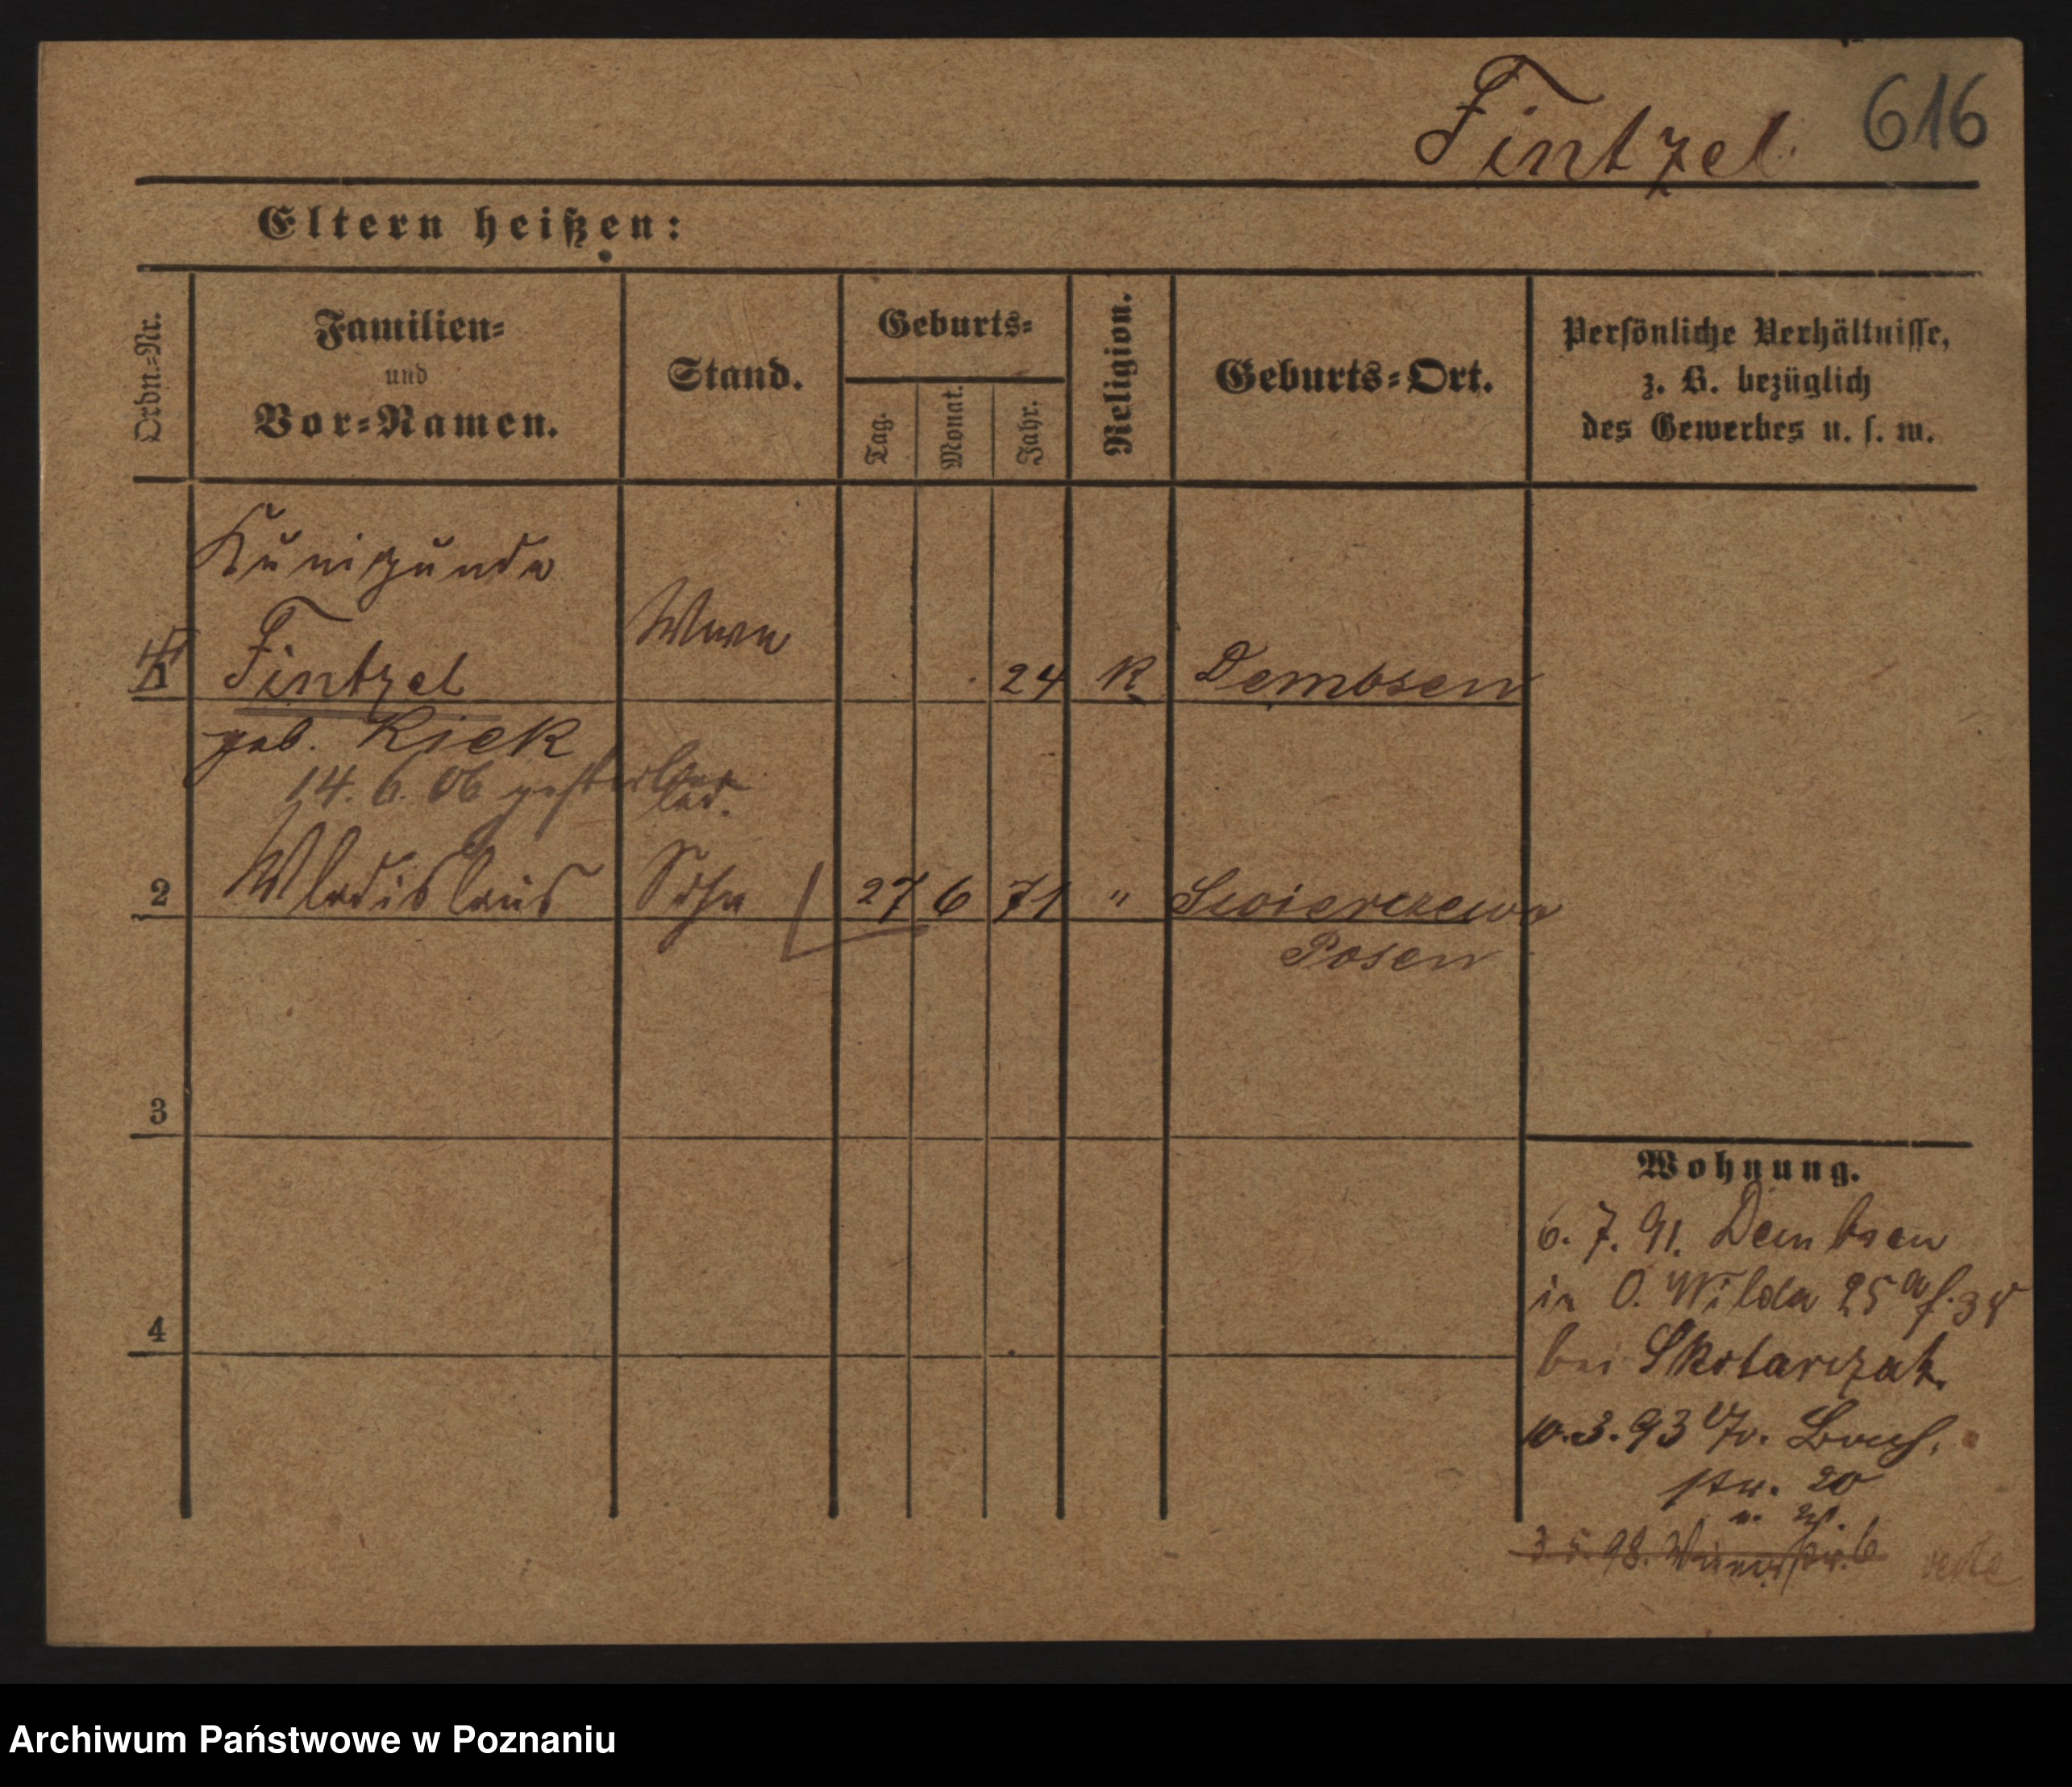 Fintzel
616
Eltern heißen:
Ordn.=Nr.
Familien=
und
Vor=Namen.
Stand.
Geburts=
Tag.
Monat.
Jahr.
Religion.
Geburts=Ort.
Persönliche Verhältnisse,
z. B. bezüglich
des Gewerbes u. s. w.
Kunigunde
1 Fintzel Wwe 24 K Dembsen
geb. Kiek
14. 6. 06 gestorben
led.
2 Wladislaus Sohn 27 6 71 " Swierczewo
Posen
3
4
Wohnung.
6. 7. 91. Dembsen
in O. Wilda 25a
bei Skotarczak.
10.3.93
str. 20
3. 5. 98. str. 6
Archiwum Państwowe w Poznaniu